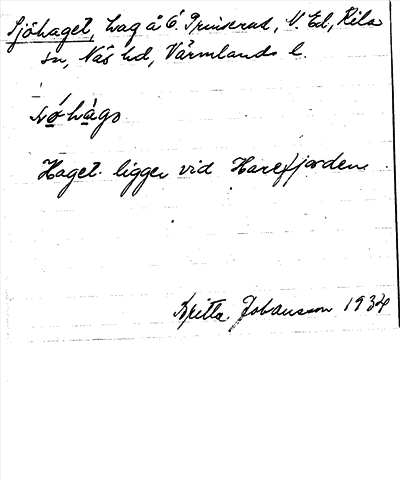 Sjöhaget, hag å Ö. Prinserud, V. Ed, Kila
sn, Näs hd, Värmlands l.
Haget ligger vid Harefjorden
Britta Johansson 1934